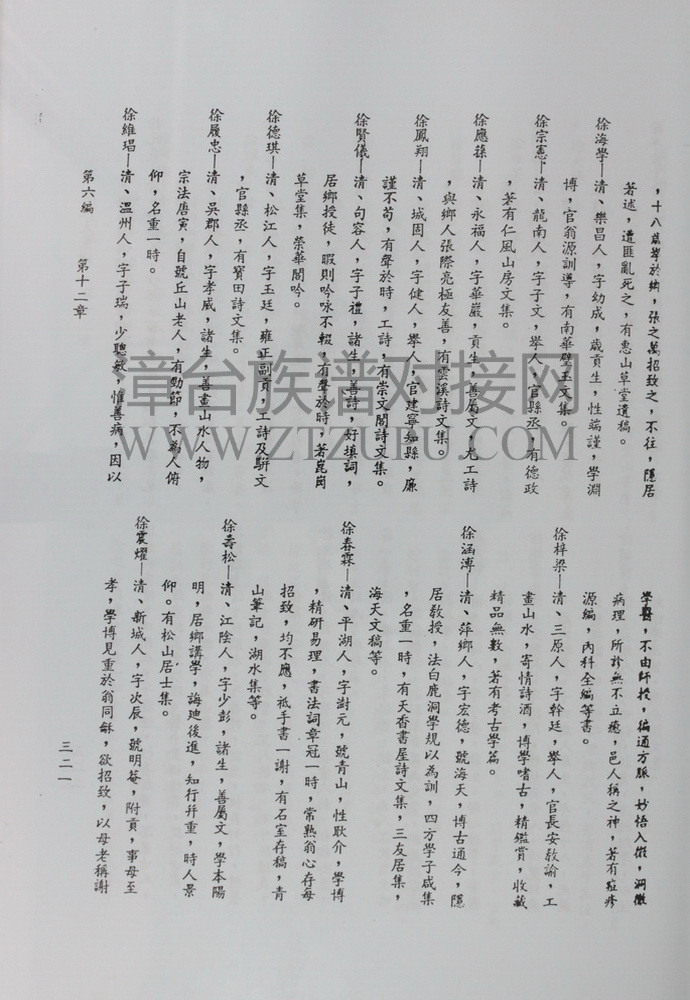 ，十八歲舉於鄉，張之萬招致之，不往，隱居
著述，遭匪亂死之，有惠山草堂遺稿。
徐海學—清、樂昌人，字幼成，歲貢生，性端謹，學淵
博，官翁源訓導，有南華璧玉文集。
徐宗憲—清、龍南人，字子文，舉人，官縣丞，有德政
，著有仁風山房文集。
徐應蓀—清、永福人，字華巖，貢生，善屬文，尤工詩
，與鄉人張際亮極友善，有雲溪詩文集。
徐鳳翔—清、城固人，字健人，舉人，官建寧知縣，廉
謹不苟，有聲於時，工詩，有崇文閣詩文集。
徐賢儀—清、句容人，字子禮，諸生，善詩，好填詞，
居鄉授徒，暇則吟咏不輟，有聲於時，著崑岡
草堂集，榮華閣吟。
徐德琪—清、松江人，字玉廷，雍正副貢，工詩及駢文
，官縣丞，有寶田詩文集。
徐履忠—清、吳郡人，字孝威，諸生，善畫山水人物，
宗法唐寅，自號丘山老人，有勁節，不為人俯
仰，名重一時。
徐維瑥—清、溫州人，字子瑞，少聰敏，惟善病，因以
學醫，不由師授，徧通方脈，妙悟入微，洞徹
病理，所診無不立癒，邑人稱之神，著有痘疹
源編，內科全編等書。
徐梓梁—清、三原人，字幹廷，舉人，官長安教諭，工
畫山水，寄情詩酒，博學嗜古，精鑑賞，收藏
精品無數，著有考古學篇。
徐涵溥—清、萍鄉人，字宏德，號海天，博古通今，隱
居教授，法白鹿洞學規以為訓，四方學子咸集
，名重一時，有天香書屋詩文集，三友居集，
海天文稿等。
徐春霖—清、平湖人，字澍元，號青山，性耿介，學博
，精研易理，書法詞章冠一時，常熟翁心存每
招致，均不應，祇手書一謝，有石室存稿，青
山筆記，湖水集等。
徐壽松—清、江陰人，字少彭，諸生，善屬文，學本陽
明，居鄉講學，誨廸後進，知行幷重，時人景
仰。有松山居士集。
徐震燿—清、新城人，字次辰，號明菴，附貢，事母至
孝，學博見重於翁同龢，欲招致，以母老稱謝
第六編　第十二章
三二一
章台族谱对接网
WWW.ZTZUPU.COM